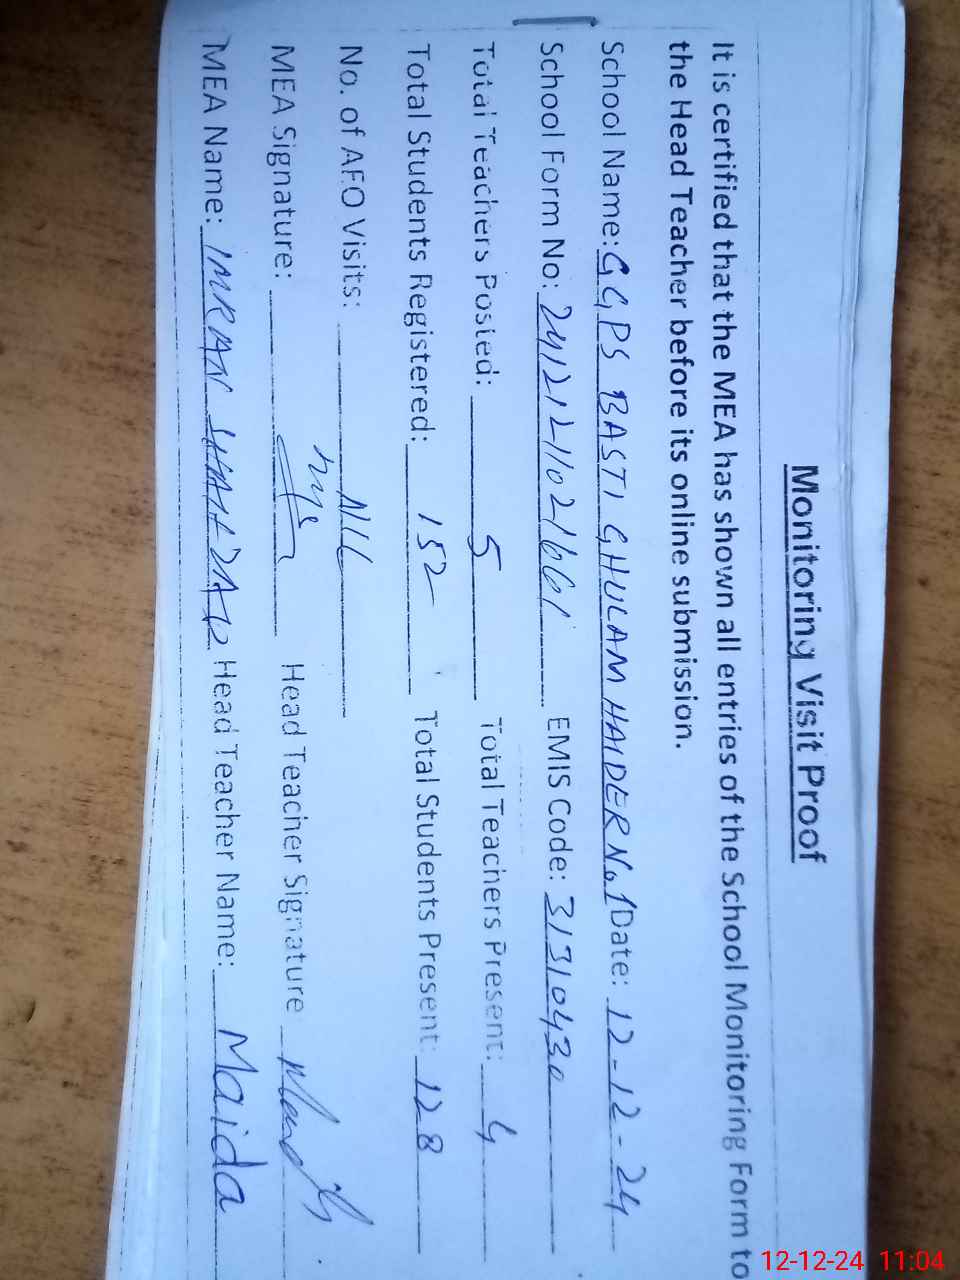 Monitoring Visit Proof
It is certified that the MEA has shown all entries of the School Monitoring Form to
the Head Teacher before its online submission.
School Name: GGPS BASTI GHULAM HAIDER No.1 Date: 12-12-24
School Form No: EMIS Code: 31310430
Total Teachers Posted: 5 Total Teachers Present: 4
Total Students Registered: 152 Total Students Present: 128
No. of AEO Visits: NIL
MEA Signature: Head Teacher Signature
MEA Name: IMRAN SHAHZAD Head Teacher Name: Maida
12-12-24 11:04